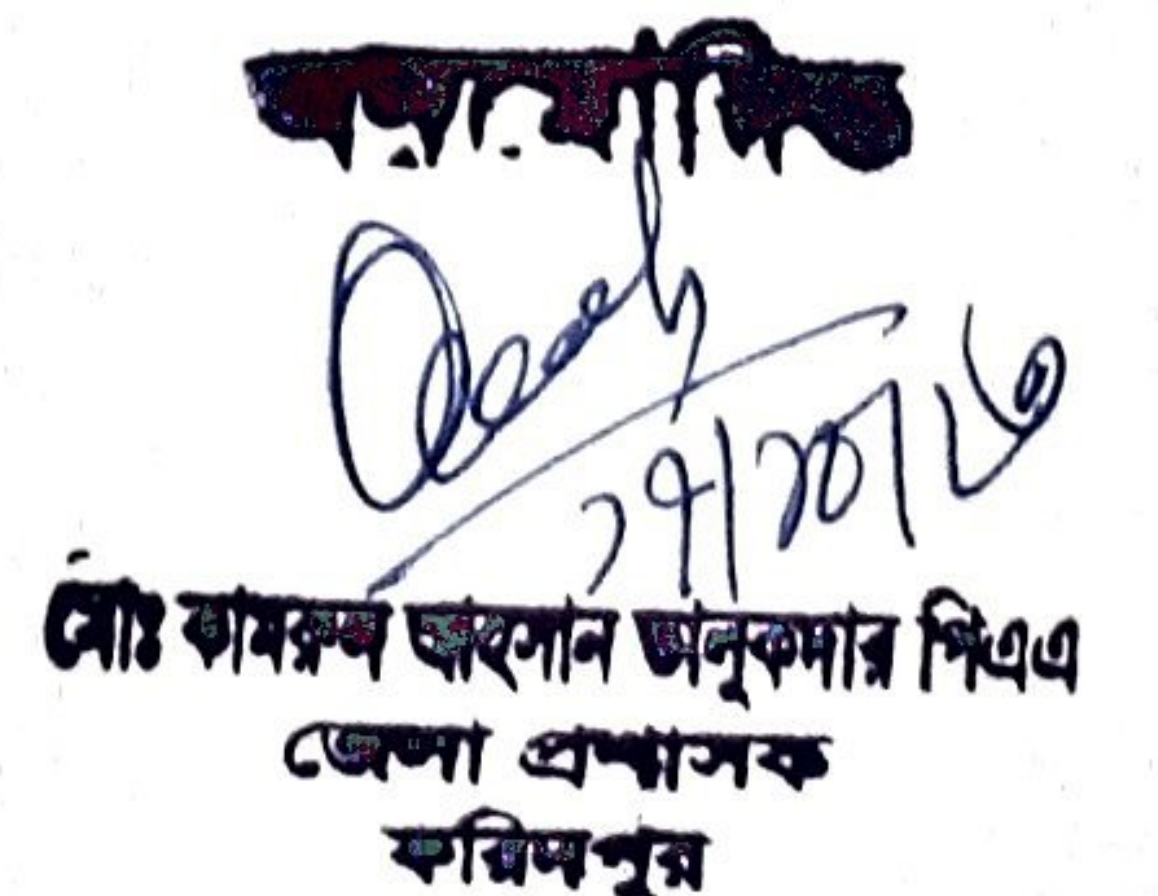 ১৭/১০/২৩
মোঃ কামরুল আহসান তালুকদার পিএএ
জেলা প্রশাসক
ফরিদপুর